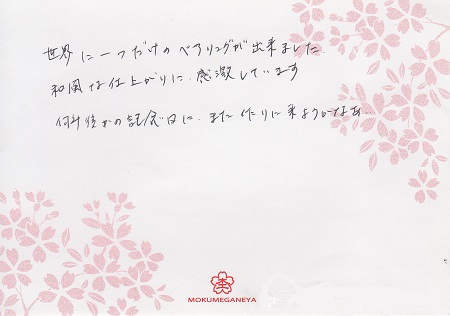 世界に一つだけのペアリングが出来ました
和風な仕上がりに、感激しています
何年後かの記念日に、また作りに来ようかなぁ…
MOKUMEGANEYA